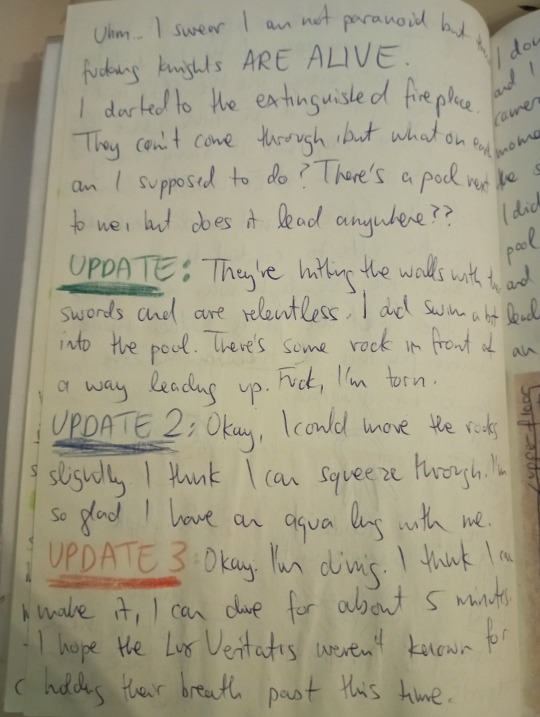 Uhm... I swear I am not paranoid but the
fucking knights ARE ALIVE.
I darted to the extinguished fireplace.
They can't come through, but what on earth
am I supposed to do? There's a pool next
to me, but does it lead anywhere??
UPDATE: They're hitting the walls with
swords and are relentless. I did swim a bit
into the pool. There's some rock in front of
a way leading up. Fuck, I'm torn.
UPDATE 2: Okay, I could move the rocks
slightly. I think I can squeeze through. I'm
so glad I have an aqua lung with me.
UPDATE 3: Okay. I'm diving. I think I can
make it, I can dive for about 5 minutes.
I hope the Lux Veritatis weren't known for
holding their breath past this time.
and I
camera
I did
pool
and
lead
an
upper floor